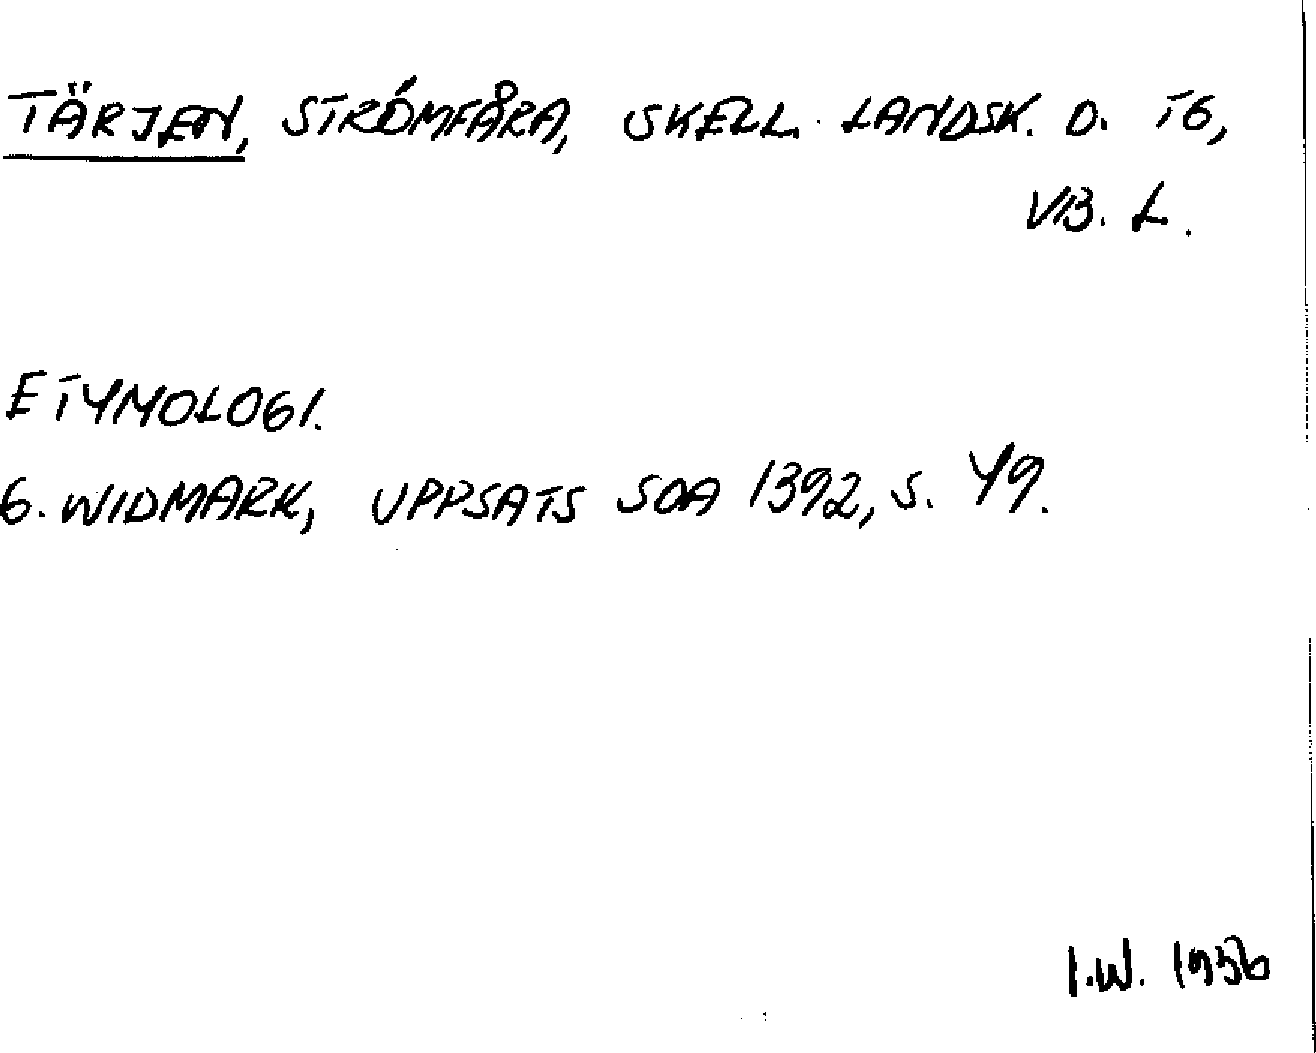 TÄRJEN, STRÖMFÅRA, SKELL. LANDSK. O. TG,
VB. L.
ETYMOLOGI.
G. WIDMARK, UPPSATS SOA 1392, S. 49.
I.W. 1956